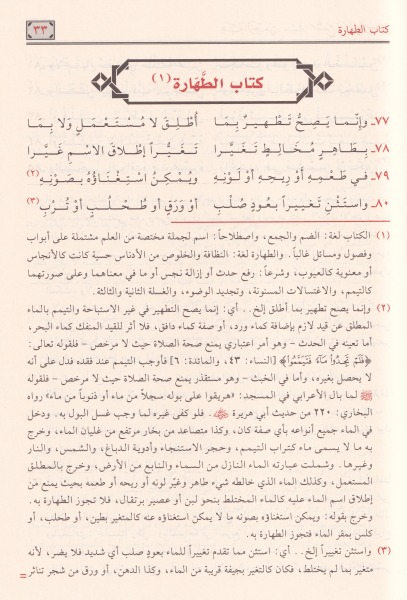 كتاب الطهارة
٣٣
كتاب الطَّهَارة (١)
٧٧ـ وإنَّما يَصِحُّ تَطْهِيرٌ بِمَا أُطْلِقَ لا مُسْتَعْمَلٍ وَلَا بِمَا
٧٨ـ بِطَاهِرٍ مُخَالِطٍ تَغَيَّرا تَغَيُّراً إطْلاقَ الاسْمِ غَيَّرا
٧٩ـ في طَعْمِهِ أوْ رِيحِهِ أو لَوْنِهِ ويُمْكِنُ اسْتِغْنَاؤُهُ بِصَوْنِهِ (٢)
٨٠ـ واسْتَثْنِ تَغييراً بعُودٍ صُلْبِ أوْ وَرَقٍ أو طُحْلُبٍ أوْ تُرْبِ (٣)
(١) الكتاب لغة: الضم والجمع، واصطلاحاً: اسم لجملة مختصة من العلم مشتملة على أبواب
وفصول ومسائل غالباً. والطهارة لغة: النظافة والخلوص من الأدناس حسية كانت كالأنجاس
أو معنوية كالعيوب، وشرعاً: رفع حدث أو إزالة نجس أو ما في معناهما وعلى صورتهما
كالتيمم، والاغتسالات المسنونة، وتجديد الوضوء، والغسلة الثانية والثالثة.
(٢) وإنما يصح تطهير بما أطلق إلخ.. أي: إنما يصح التطهير في غير الاستباحة والتيمم بالماء
المطلق عن قيد لازم بإضافة كماء ورد، أو صفة كماء دافق، فلا أثر للقيد المنفك كماء البحر،
أما تعينه في الحدث – وهو أمر اعتباري يمنع صحة الصلاة حيث لا مرخص – فلقوله تعالى:
﴿فَلَمْ تَجِدُوا مَاءً فَتَيَمَّمُوا﴾ [النساء: ٤٣، والمائدة: ٦] فأوجب التيمم عند فقده فدل على أنه
لا يحصل بغيره، وأما في الخبث – وهو مستقذر يمنع صحة الصلاة حيث لا مرخص – فلقوله
ﷺ لما بال الأعرابي في المسجد: «هريقوا على بوله سجلاً مَن ماء أو ذنوباً من ماء» رواه
البخاري: ٢٢٠ من حديث أبي هريرة. فلو كفى غيره لما وجب غسل البول به. ودخل
في الماء جميع أنواعه بأي صفة كان، وكذا متصاعد من بخار مرتفع من غليان الماء، وخرج
به ما لا يسمى ماء كتراب التيمم، وحجر الاستنجاء وأدوية الدباغ، والشمس، والنار
وغيرها. وشملت عبارته الماء النازل من السماء والنابع من الأرض، وخرج بالمطلق
المستعمل، وكذلك الماء الذي خالطه شيء طاهر وغيّر لونه أو ريحه أو طعمه بحيث يمنع من
إطلاق اسم الماء عليه كالماء المختلط بنحو لبن أو عصير برتقال، فلا تجوز الطهارة به.
وخرج بقوله: ويمكن استغناؤه بصونه ما لا يمكن استغناؤه عنه كالمتغير بطين، أو طحلب، أو
كلس بمقر الماء فتجوز الطهارة به.
(٣) واستثن تغييراً إلخ.. أي: استثن مما تقدم تغييراً للماء بعود صلب أي شديد فلا يضر، لأنه
متغير بما لم يختلط، فكان كالتغير بجيفة قريبة من الماء، وكذا الدهن، أو ورق من شجر تناثر =